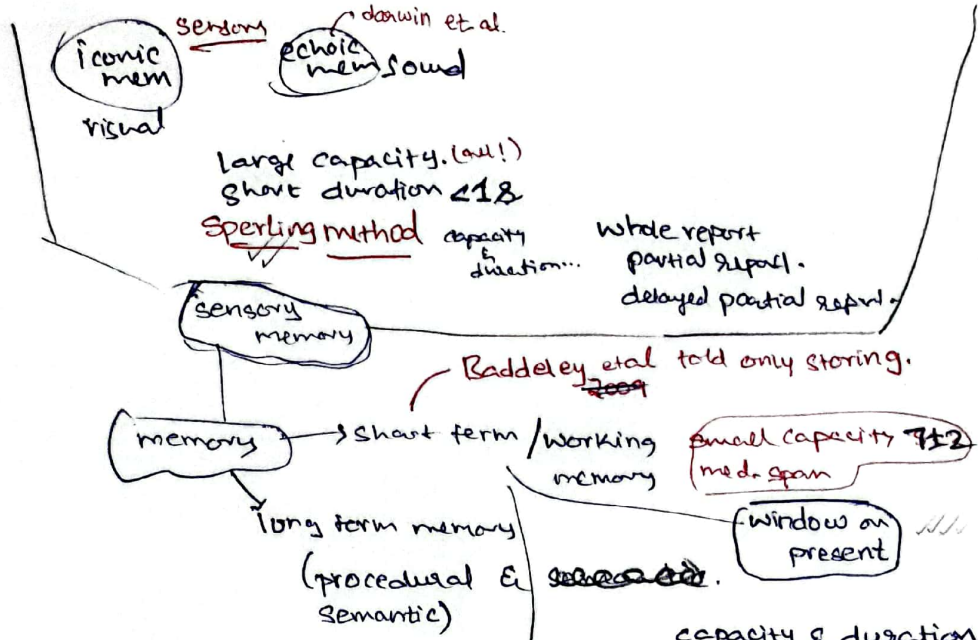 sensory
darwin et al.
iconic
mem
echoic
mem
sound
visual
large capacity. (all!)
short duration <1s
Sperling method
capacity
&
duration...
whole report
partial report.
delayed partial report.
sensory
memory
Baddeley et al told only storing.
2009
memory
short term / working
memory
small capacity 7±2
med. span
window on
present
long term memory
(procedural &
semantic)
capacity & duration